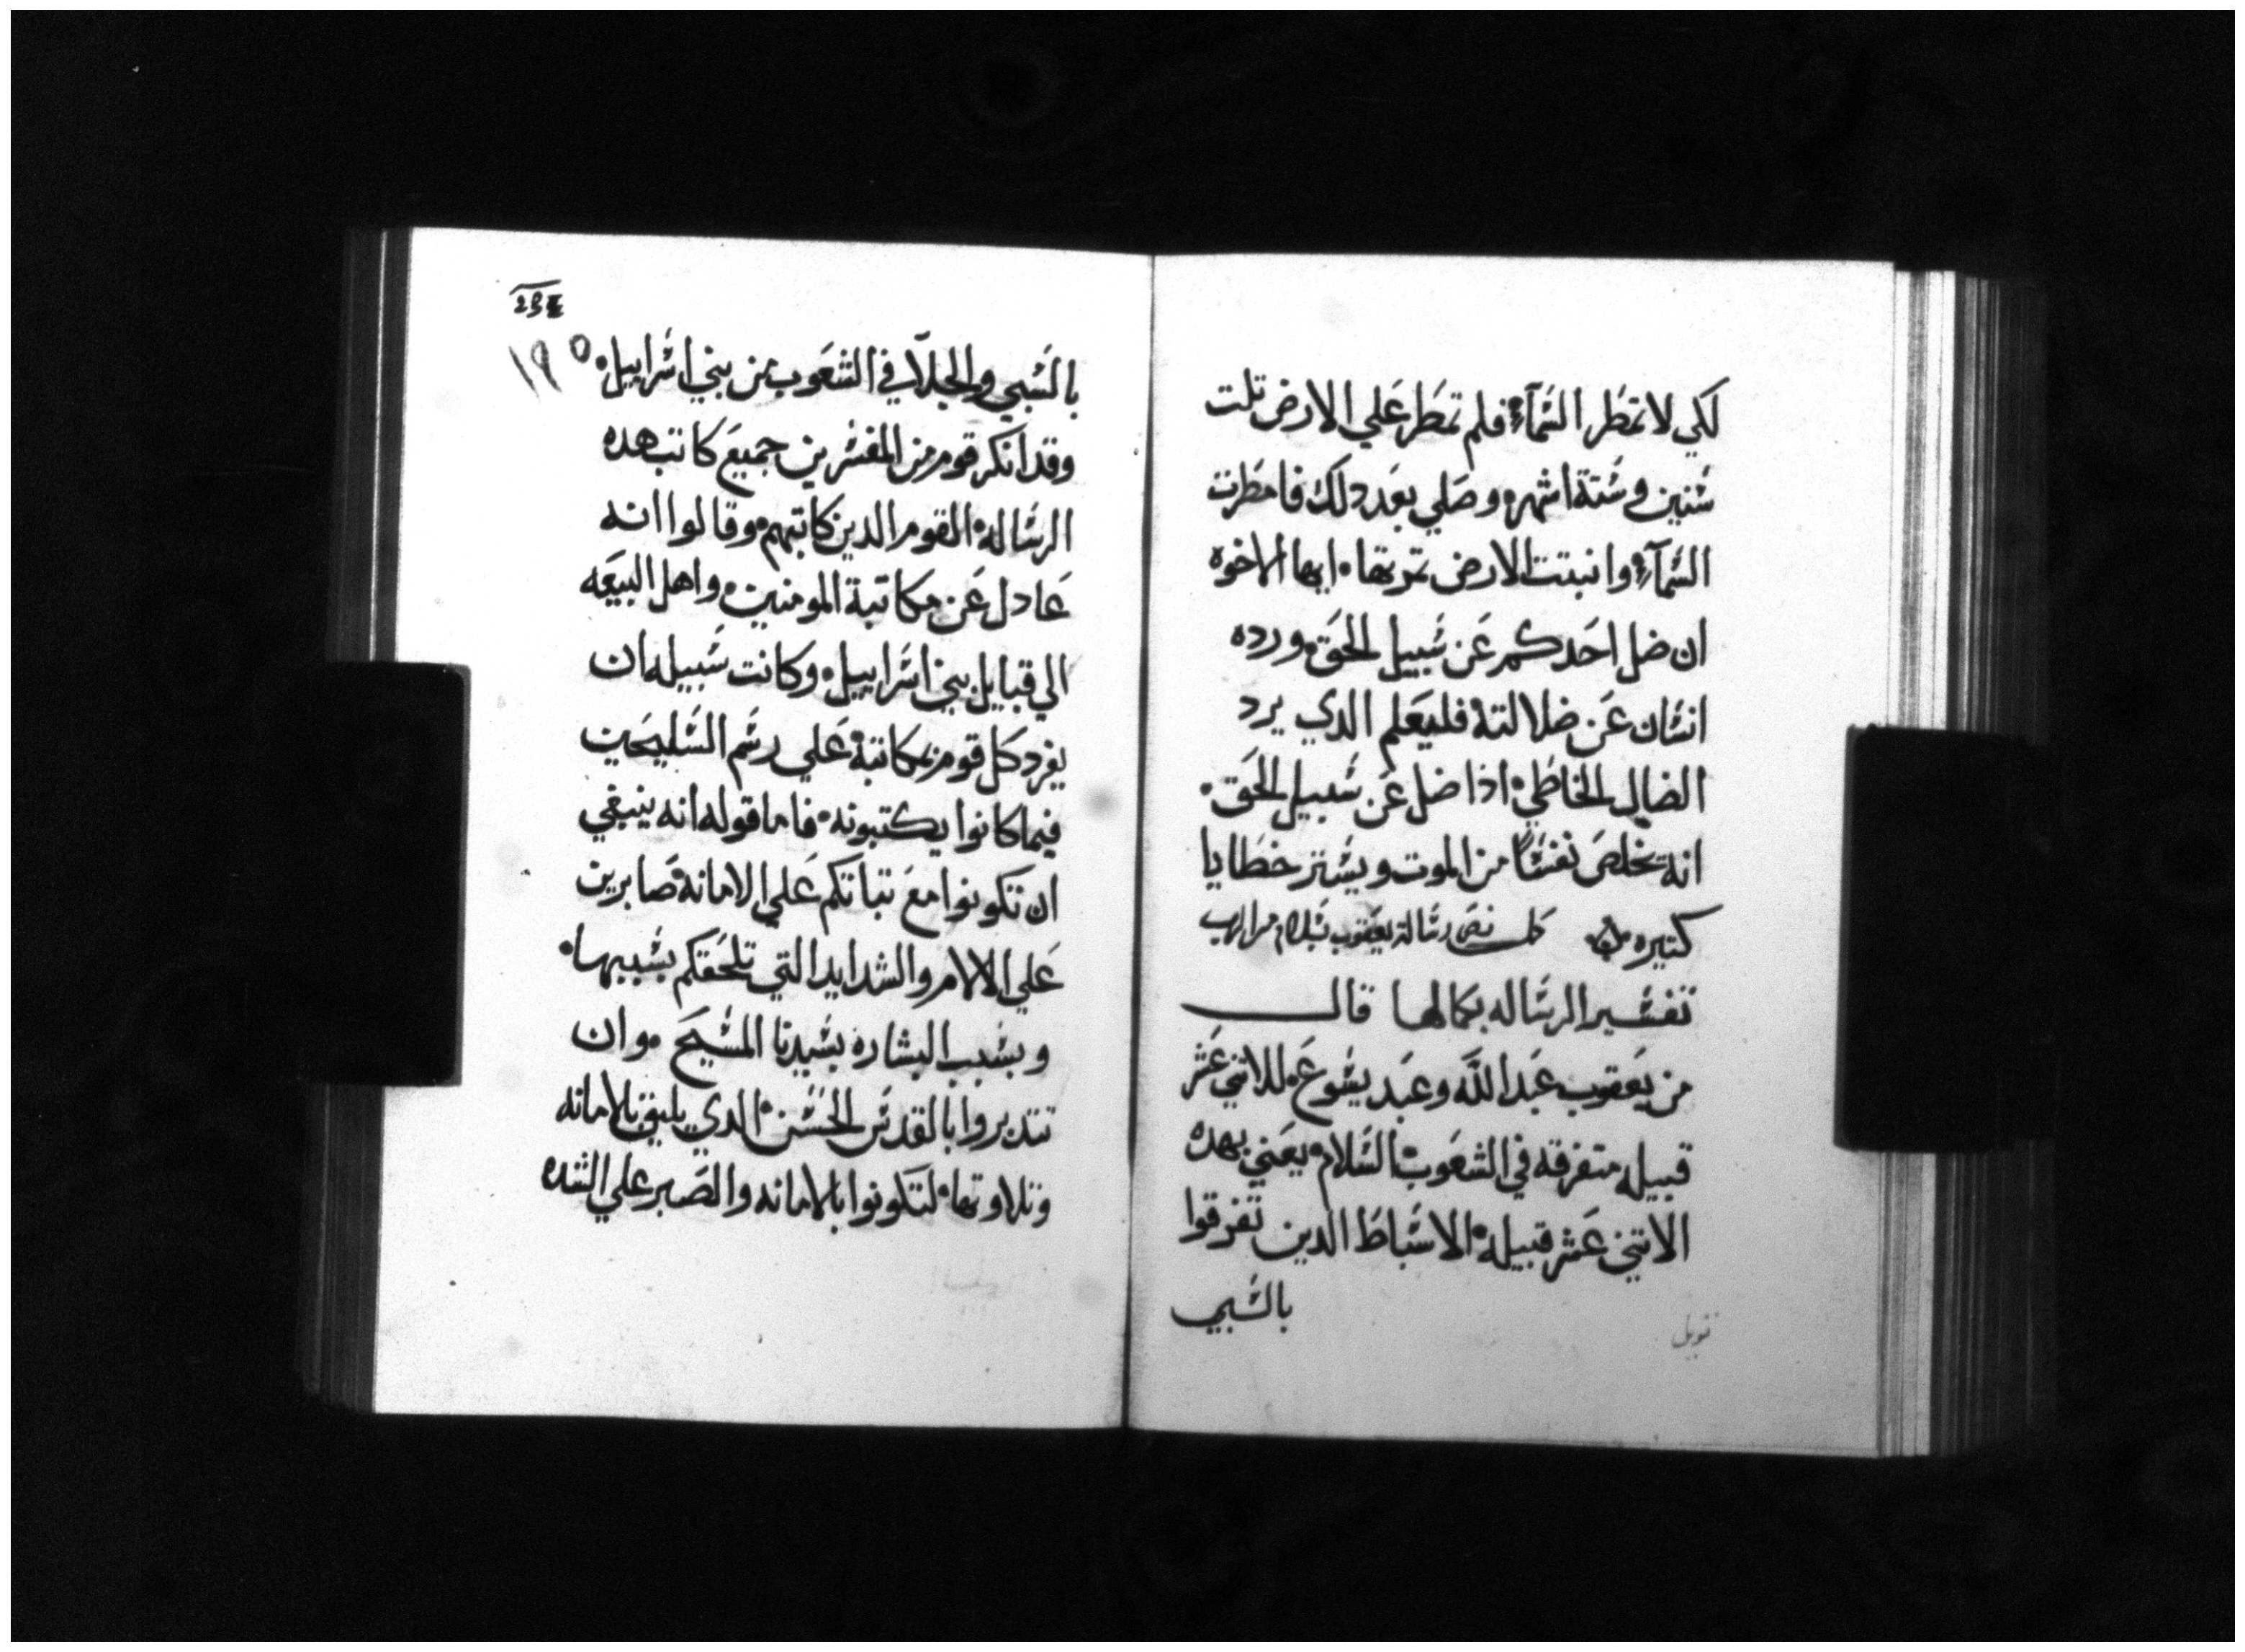 لكي لا تمطر السمآء فلم تمطر علي الارض تلت
سنين وستة اشهر وصلي بعد دلك فامطرت
السمآء وانبتت الارض تمرتها ايها الاخوه
ان ضل احدكم عن سبيل الحق ورده
انسان عن ضلالته فليعلم الدي يرد
الضال الخاطي اذا ضل عن سبيل الحق
انه يخلص نفسًا من الموت ويستر خطايا
كتيره كمل نص رسالة يعقوب بسلام من الرب
تفسير الرساله بكمالها قال
من يعقوب عبد الله وعبد يسوع للاتني عشر
قبيله متفرقه في الشعوب السلام يعني بهده
الاتني عشر قبيله الاسباط الدين تفرقوا
بالسبي
بالسبي والجلآ في الشعوب من بني اسراييل
وقد انكر قوم من المفسرين جميع كاتب هده
الرساله القوم الدين كاتبهم وقالوا انه
عادل عن مكاتبة المومنين واهل البيعه
الي قبايل بني اسراييل وكانت سبيله ان
يفرد كل قوم بمكاتبة علي رسم السليحين
فيما كانوا يكتبونه فاما قوله انه ينبغي
ان تكونوا مع تباتكم علي الامانة صابرين
علي الالام والشدايد التي تلحقكم بسببها
وبسبب البشاره بسيدنا المسيح وان
تتدبروا بالقدس الحسن الدي يليق بالامانه
وتلاوتها لتكونوا بالامانه والصبر علي الشده